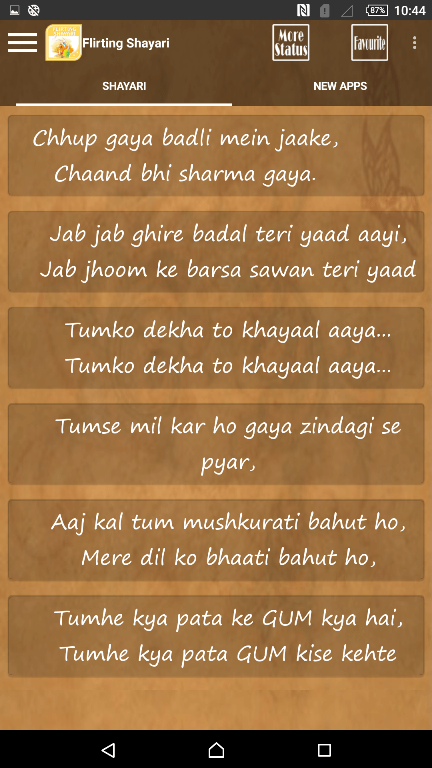 87%
10:44
Flirting Shayari
More
Status
Favourite
SHAYARI
NEW APPS
Chhup gaya badli mein jaake,
Chaand bhi sharma gaya.
Jab jab ghire badal teri yaad aayi,
Jab jhoom ke barsa sawan teri yaad
Tumko dekha to khayaal aaya...
Tumko dekha to khayaal aaya...
Tumse mil kar ho gaya zindagi se
pyar,
Aaj kal tum mushkurati bahut ho,
Mere dil ko bhaati bahut ho,
Tumhe kya pata ke GUM kya hai,
Tumhe kya pata GUM kise kehte